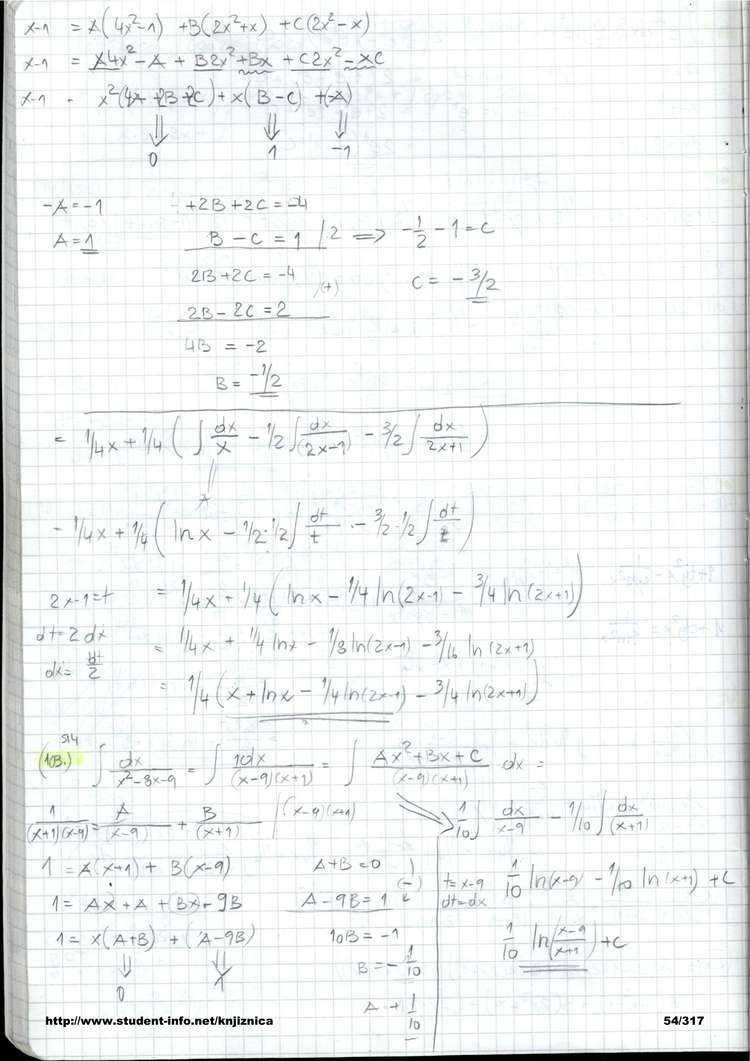 x-1 = A(4x²-1) + B(2x²+x) + C(2x²-x)
x-1 = A4x² - A + B2x² + Bx + C2x² - xC
x-1 = x²(4A + 2B + 2C) + x(B-C) + (-A)
⇓ ⇓ ⇓
0 1 -1
-A = -1 +2B+2C = -4
A = 1 B - C = 1 /2 ⇒ -1/2 - 1 = C
2B+2C = -4 /(+) C = -3/2
2B-2C = 2
4B = -2
B = -1/2
= 1/4x + 1/4 ( ∫ dx/x - 1/2 ∫ dx/(2x-1) - 3/2 ∫ dx/2x+1 )
= 1/4x + 1/4 ( ln x - 1/2·1/2 ∫ dt/t - 3/2·1/2 ∫ dt/t )
2x-1 = t = 1/4x + 1/4 ( ln x - 1/4 ln(2x-1) - 3/4 ln(2x+1) )
dt = 2dx = 1/4x + 1/4 ln x - 1/8 ln(2x-1) - 3/16 ln(2x+1)
dx = dt/2 = 1/4 ( x + ln x - 1/4 ln(2x-1) - 3/4 ln(2x+1) )
514
(103.) ∫ dx/x²-8x-9 = ∫ 1dx/(x-9)(x+1) = ∫ Ax²+Bx+C/(x-9)(x+1) dx =
1/(x+1)(x-9) = A/(x-9) + B/(x+1) /(x-9)(x+1)
1 = A(x+1) + B(x-9)
1 = Ax + A + Bx - 9B
1 = x(A+B) + (A-9B)
⇓ ⇓
0 1
A+B = 0
A-9B = 1 (-)
10B = -1
B = -1/10
A = 1/10
1/10 ∫ dx/x-9 - 1/10 ∫ dx/(x+1)
t = x-9 1/10 ln(x-9) - 1/10 ln(x+1) + C
dt = dx
1/10 ln(x-9/x+1) + C
http://www.student-info.net/knjiznica 54/317